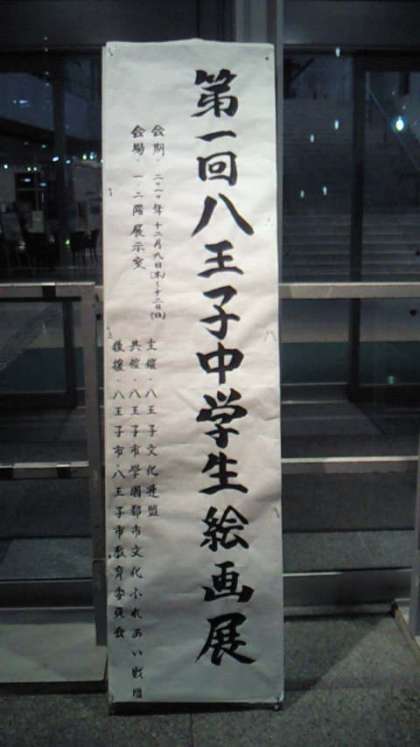 第一回八王子中学生絵画展
会期・二〇一〇年十二月九日(木)～十二日(日)
会場・一二階展示室
主催・八王子文化連盟
共催・八王子市学園都市文化ふれあい財団
後援・八王子市・八王子市教育委員会